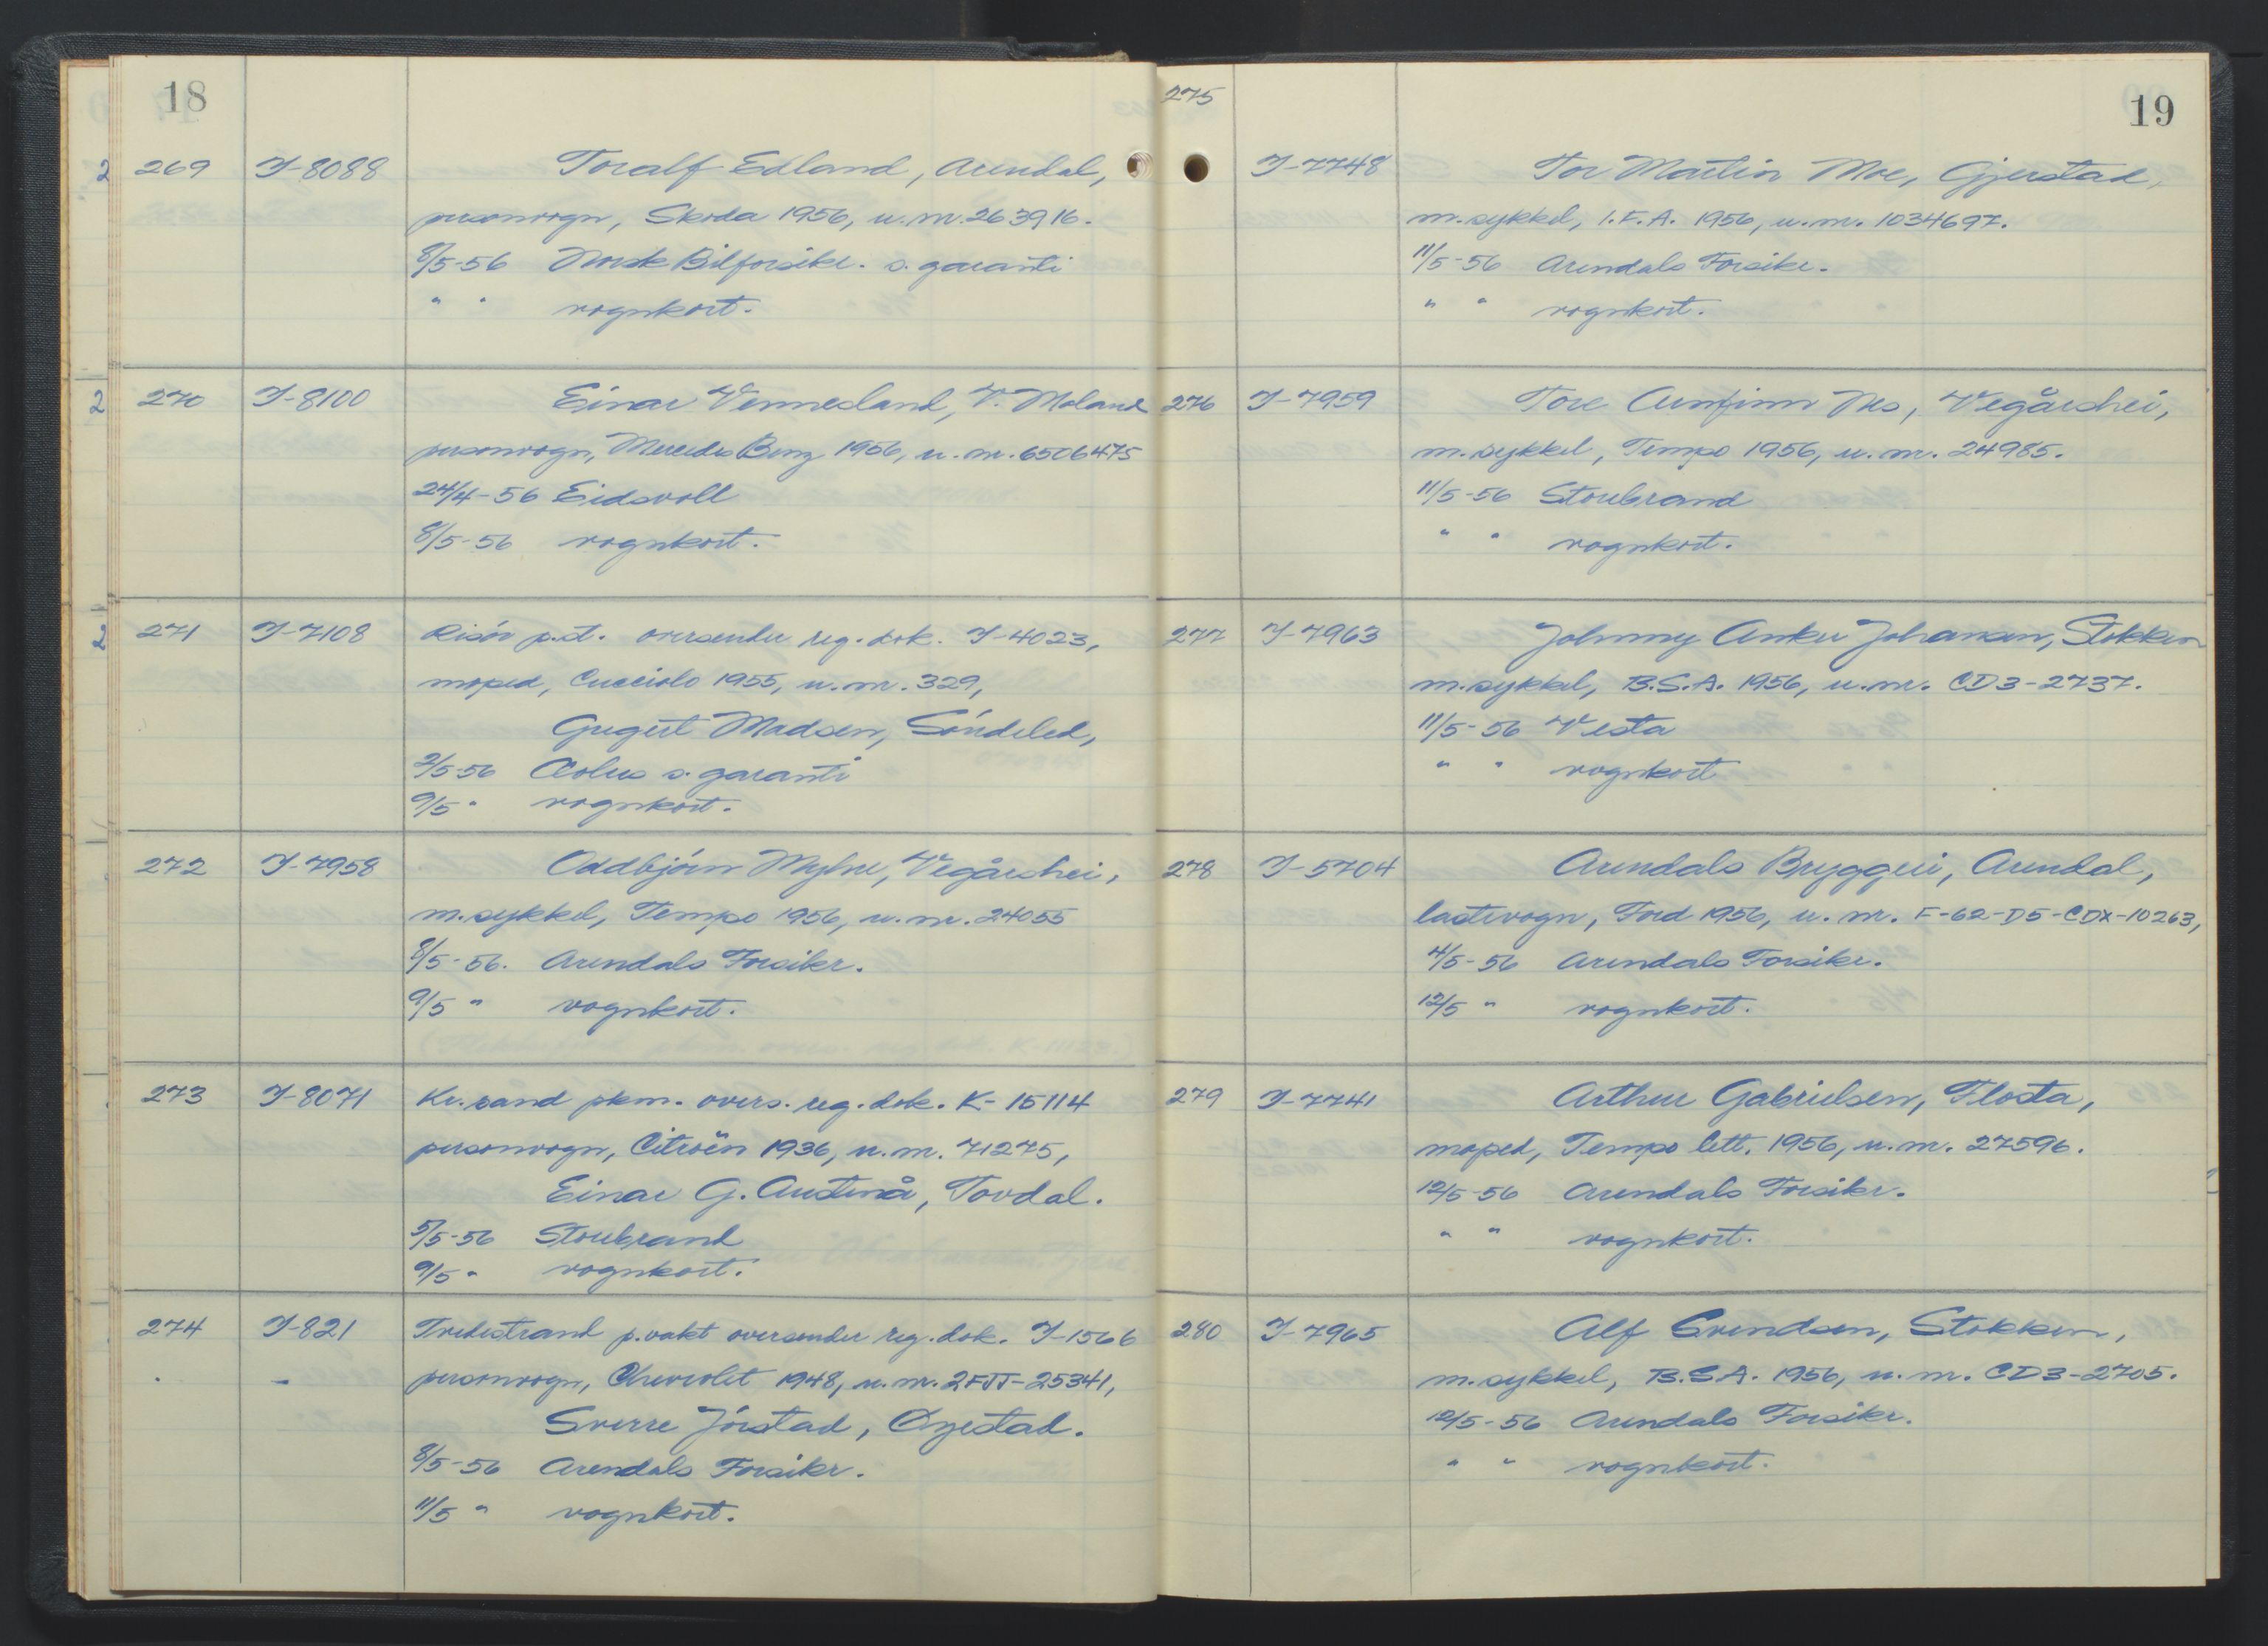 18
269 I-8088 Toralf Edland, Arendal,
personvogn, Skoda 1956, u.nr. 263916.
8/5-56 Norsk Bilforsikr. s. garanti
" " vognkort.
270 I-8100 Einar Vennesland, V. Moland
personvogn, Mercedes Benz 1956, u.nr. 6506475
24/4-56 Eidsvoll
8/5-56 vognkort.
271 I-7108 Risör p.st. oversender reg.dok. I-4023,
moped, Cucciolo 1955, u.nr. 329,
Gregert Madsen, Söndeled,
2/5-56 Æolus s. garanti
9/5 " vognkort.
272 I-7958 Oddbjörn Myhre, Vegårshei,
m.sykkel, Tempo 1956, u.nr. 24055
8/5-56. Arendals Forsikr.
9/5 " vognkort.
273 I-8071 Kr.sand pkm. overs. reg.dok. K-15114
personvogn, Citroën 1936, u.nr. 71275,
Einar G. Austenå, Tovdal.
5/5-56 Storebrand
9/5 " vognkort.
274 I-821 Tvedestrand p.vakt oversender reg.dok. I-1566
personvogn, Chevrolet 1948, u.nr. 2FJJ-25341,
Sverre Jörstad, Øyestad.
8/5-56 Arendals Forsikr.
11/5 " vognkort.
19
275 I-7748 Tor Martin Moe, Gjerstad,
m.sykkel, I.F.A. 1956, u.nr. 1034697.
11/5-56 Arendals Forsikr.
" " vognkort.
276 I-7959 Tore Arnfinn Nes, Vegårshei,
m.sykkel, Tempo 1956, u.nr. 24985.
11/5-56 Storebrand
" " vognkort.
277 I-7963 Johnny Anker Johansen, Stokken
m.sykkel, B.S.A. 1956, u.nr. CD3-2737.
11/5-56 Vesta
" " vognkort
278 I-5704 Arendals Bryggeri, Arendal,
lastevogn, Ford 1956, u.nr. F-62-D5-CDX-10263,
4/5-56 Arendals Forsikr.
12/5 " vognkort.
279 I-7741 Arthur Gabrielsen, Flosta,
moped, Tempo lett. 1956, u.nr. 27596.
12/5-56 Arendals Forsikr.
" " vognkort.
280 I-7965 Alf Svendsen, Stokken,
m.sykkel, B.S.A. 1956, u.nr. CD3-2705.
12/5-56 Arendals Forsikr.
" " vognkort.